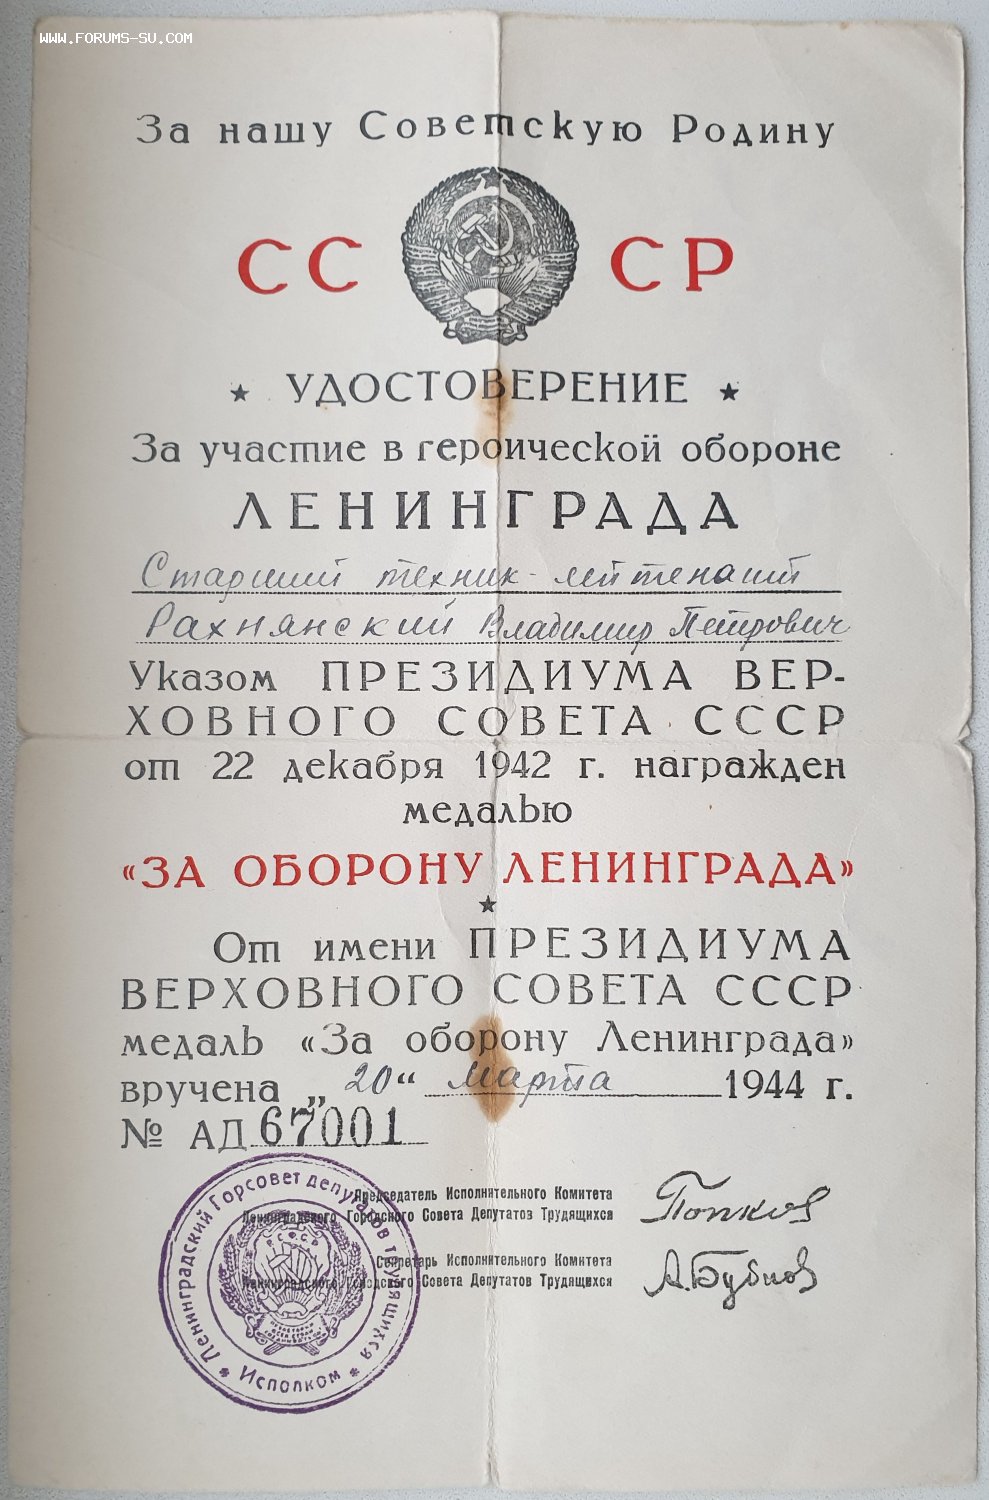 WWW.FORUMS-SU.COM
За нашу Советскую Родину
СС СР
★ УДОСТОВЕРЕНИЕ ★
За участие в героической обороне
ЛЕНИНГРАДА
Старший техник-лейтенант
Рахнянский Владимир Петрович
Указом ПРЕЗИДИУМА ВЕР-
ХОВНОГО СОВЕТА СССР
от 22 декабря 1942 г. награжден
медалью
«ЗА ОБОРОНУ ЛЕНИНГРАДА»
★
От имени ПРЕЗИДИУМА
ВЕРХОВНОГО СОВЕТА СССР
медаль «За оборону Ленинграда»
вручена „20“ марта 1944 г.
№ АД 67001
Председатель Исполнительного Комитета
Ленинградского Городского Совета Депутатов Трудящихся
Попков
Секретарь Исполнительного Комитета
Ленинградского Городского Совета Депутатов Трудящихся
А.Бубнов
Ленинградский Горсовет депутатов трудящихся
* Исполком *
Р.С.Ф.С.Р.